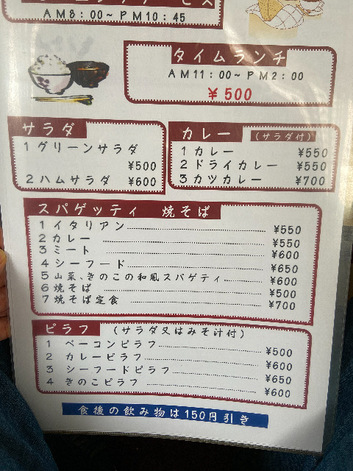 AM8:00~PM10:45
タイムランチ
AM11:00~PM2:00
¥500
サラダ
1 グリーンサラダ
¥500
2 ハムサラダ ¥600
カレー (サラダ付)
1 カレー ¥550
2 ドライカレー ¥550
3 カツカレー ¥700
スパゲッティ 焼そば
1 イタリアン ¥550
2 カレー ¥550
3 ミート ¥600
4 シーフード ¥650
5 山菜、きのこの和風スパゲティ ¥600
6 焼そば ¥500
7 焼そば定食 ¥700
ピラフ (サラダ又はみそ汁付)
1 ベーコンピラフ ¥500
2 カレーピラフ ¥600
3 シーフードピラフ ¥650
4 きのこピラフ ¥600
食後の飲み物は150円引き